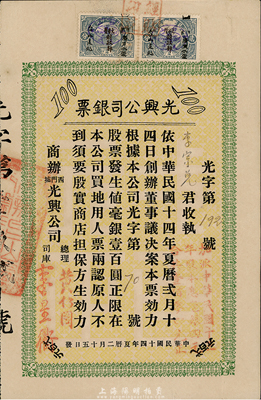 光興公司銀票
100
100
光字第192號
李宗光君收執
依中華民國十四年夏曆弍月十
四日創辦董事議決案本票効力
根據本公司光字第70號
股票發生値毫銀壹百圓正限在
本公司買地用人票兩認原人不
到須要股實商店担保方生効力
商辦西門插光興公司
總理
司庫
中華民國十四年夏曆二月十五日發